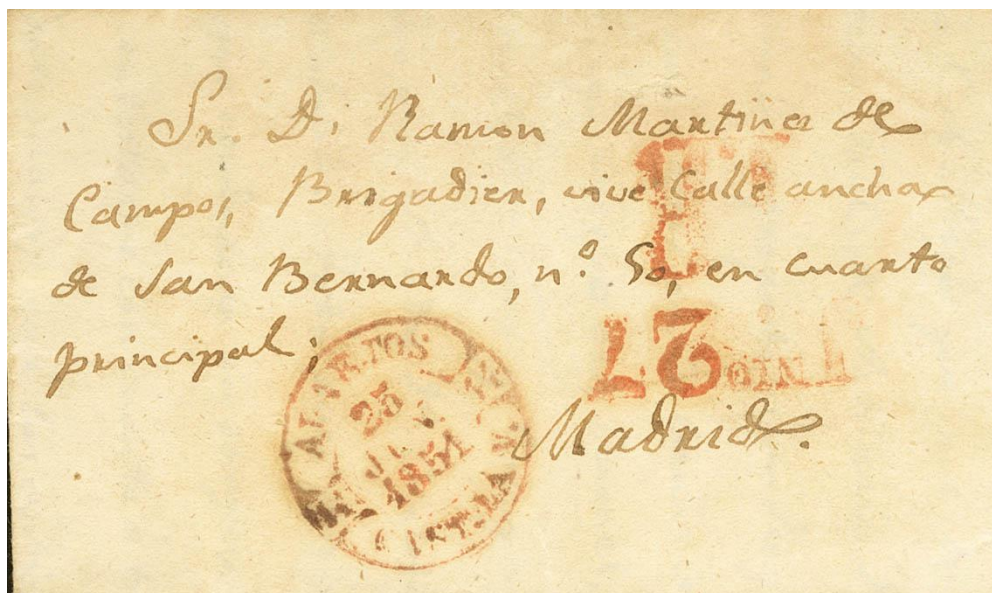 Sr. D. Ramon Martinez de
Campos, Brigadier, vive Calle ancha
de San Bernardo, n.º 50, en cuarto
principal;
Madrid.
27
JUNIO
25
1851
CAST.LA